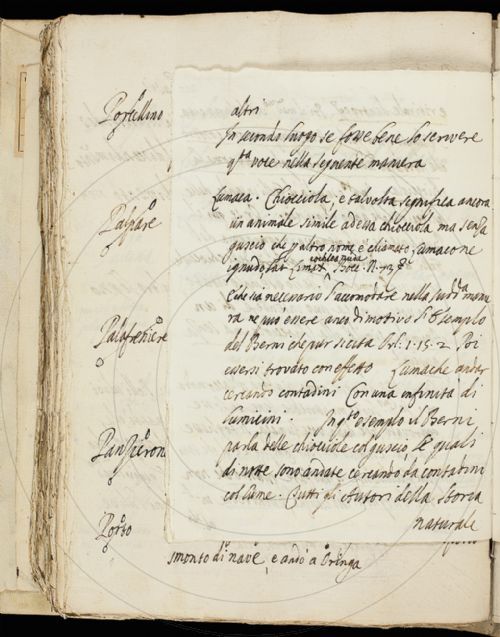 Porcellino
Palpare
Palafreniere
Panzerone
Porto
altri
In secondo luogo se fosse bene lo scrivere
q.ta voce nella seguente maniera
Lumaca. Chiocciola, e talvolta significa ancora
un animale simile ad essa chiocciola ma senza
guscio che p altro nome è chiamato Lumacone
ignudo lat. Limax, cochlea nuda
E che sia necessario l'accomodare nella sudd.a manie
ra ne può essere anco di motivo l'esempio
del Berni che pur si cita Orl. 1. 15. 2 Poi
essersi trovato con effetto Lumache andar
cercando contadini Con una infinità di
Lumicini. In q.to esempio il Berni
parla delle chiocciole col guscio le quali
di notte sono andate cercando da contadini
col lume. Tutti gli Autori della Storia
naturale
smontò di nave, e andò a